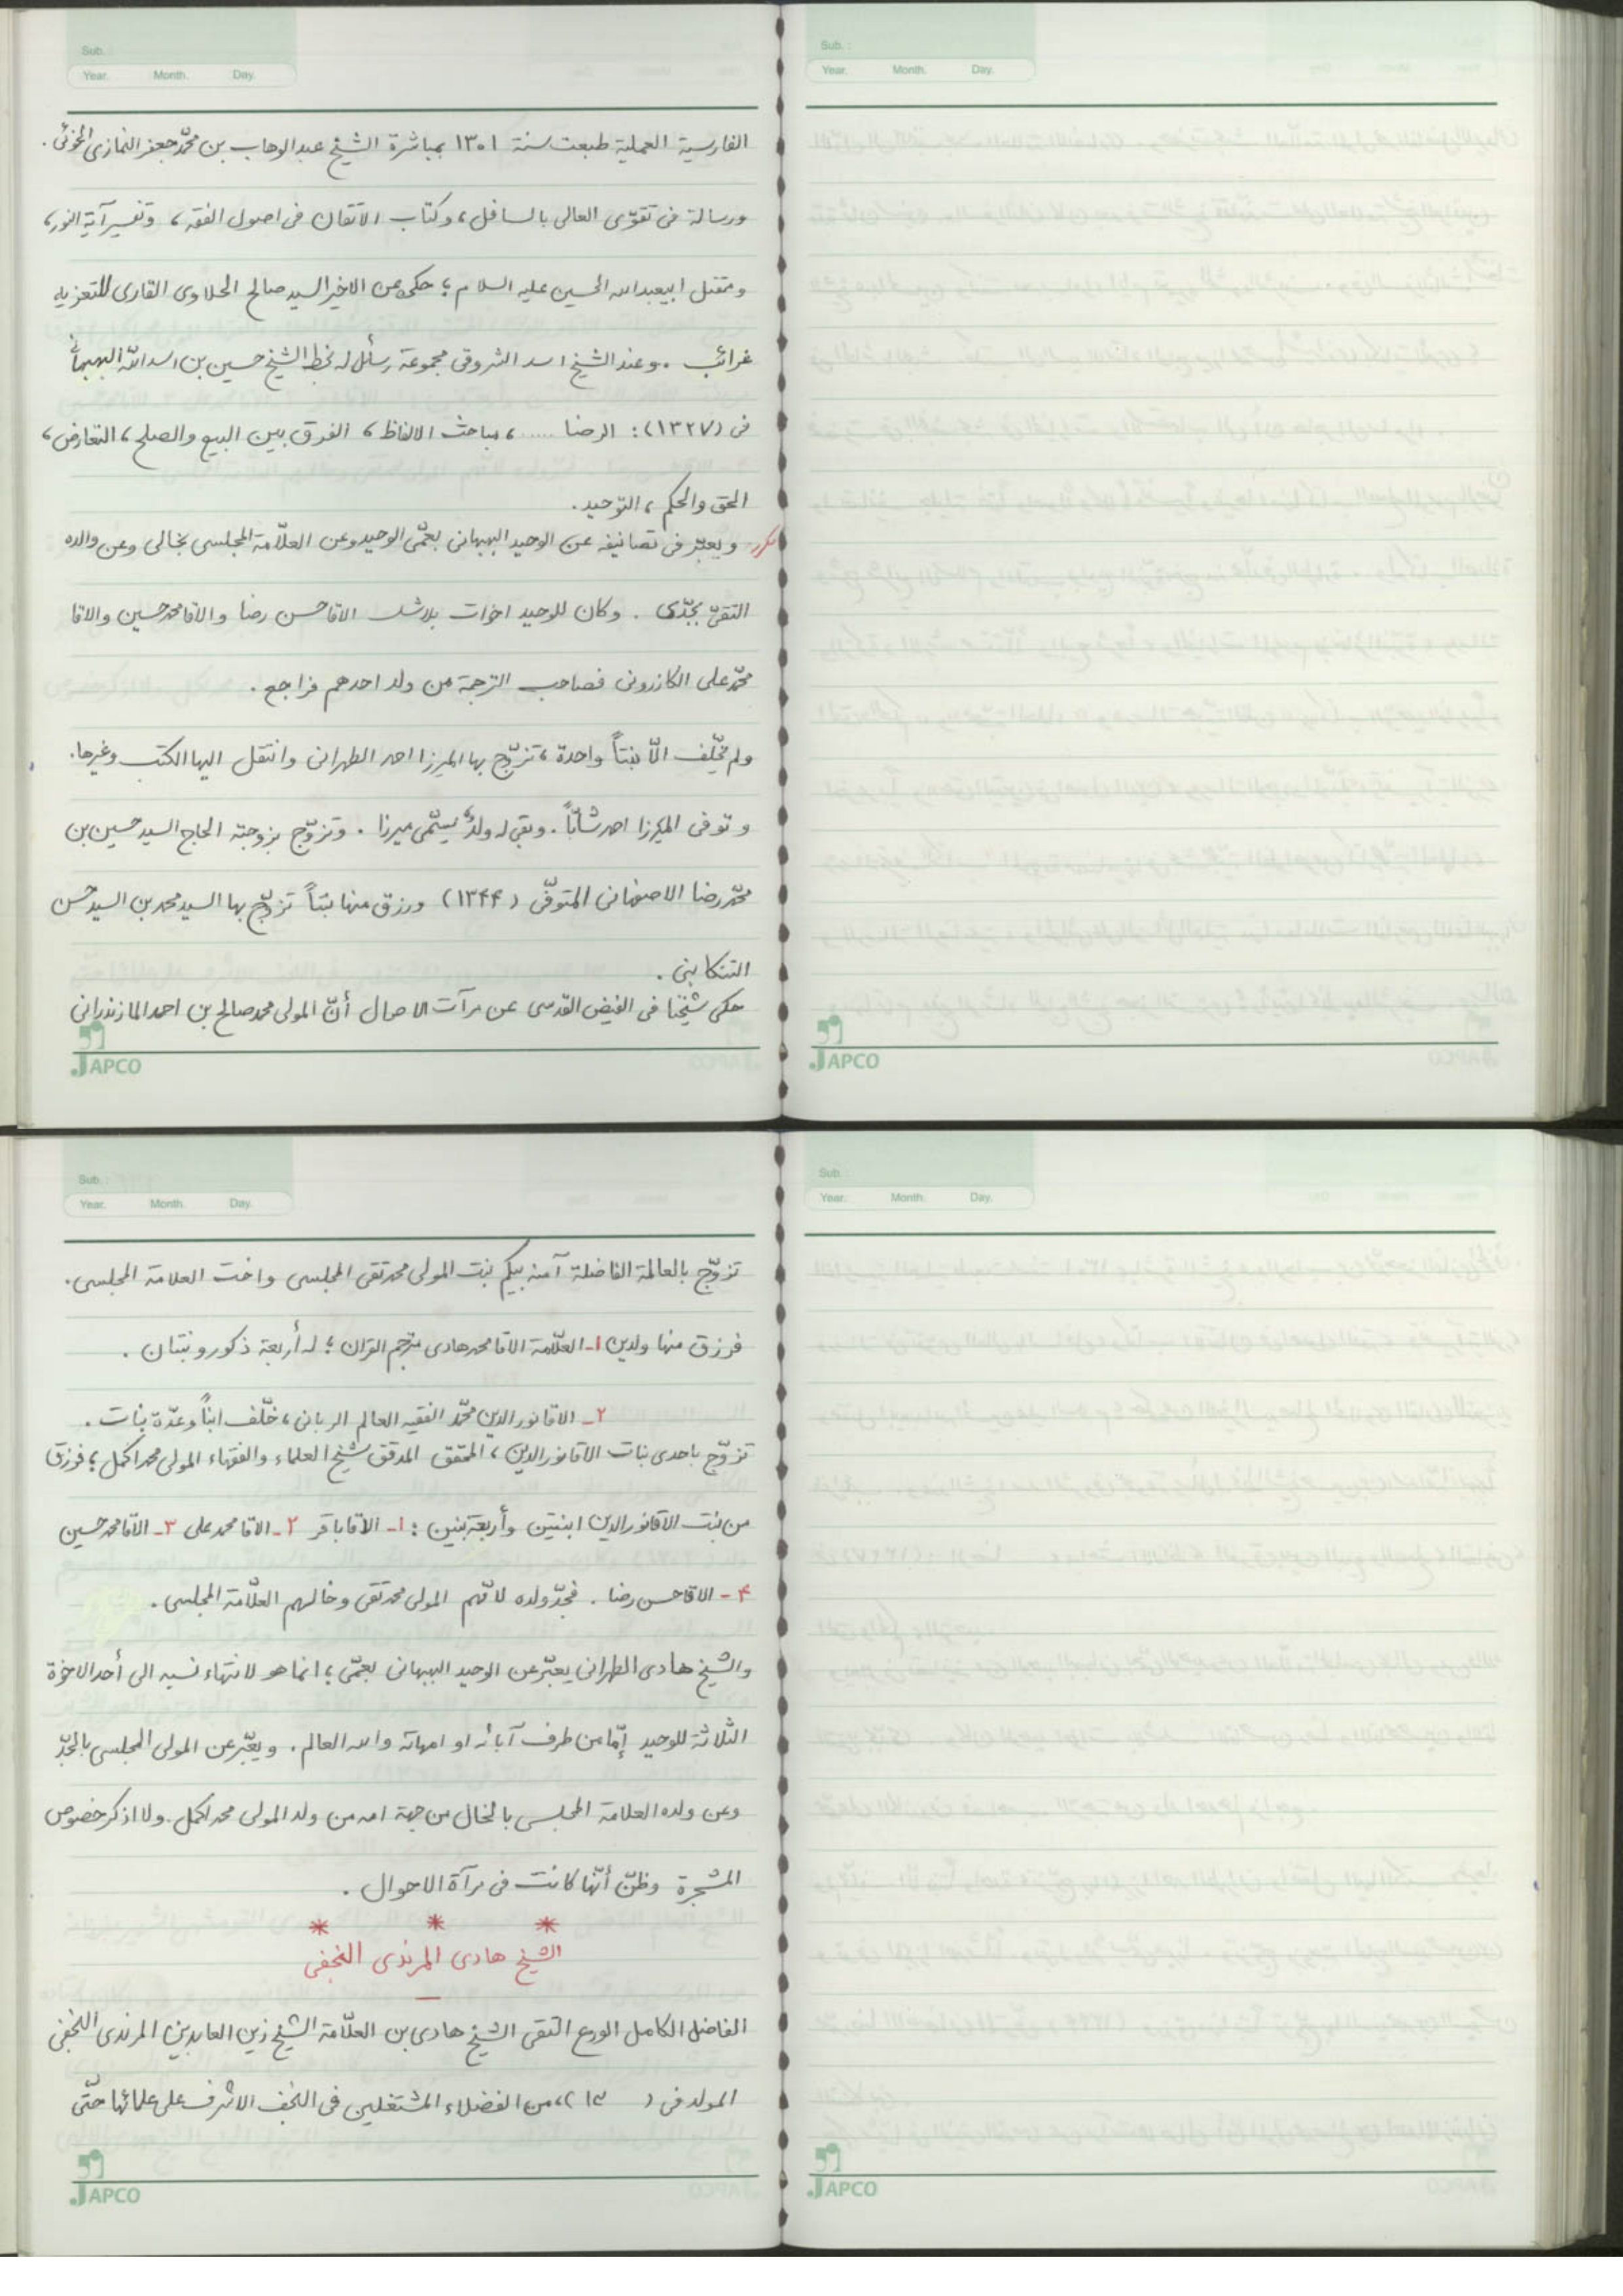 Sub. :
Year. Month. Day.
الفارسية العملية طبعت سنة ١٣٠١ بمباشرة الشيخ عبدالوهاب بن محمّد جعفر النمازى الخوئى .
ورسالة فى تقوّى العالى بالسافل ، وكتاب الاتقان فى اصول الفقه ، وتفسير آية النور ،
ومقتل ابيعبدالله الحسين عليه السلام ؛ حكى عن الاخير السيد صالح الحلاوى القارى للتعزيه
غرائب . وعند الشيخ اسد الشروقى مجموعة رسائل له بخط الشيخ حسين بن اسدالله البهبهانى
فى (١٣٢٧) : الرضا ..... ، مباحث الالفاظ ، الفرق بين البيع والصلح ، التعارض ،
الحق والحكم ، التوحيد .
مكرر ويعبّر فى تصانيفه عن الوحيد البهبهانى بعمّى الوحيد وعن العلّامة المجلسى بخالى وعن والده
التقىّ بجدّى . وكان للوحيد اخوات الاقا حسن رضا والاقا محمد حسين والاقا
محمّد على الكازرونى فصاحب الترجمة من ولد احدهم فراجع .
ولم يخلّف الّا بنتاً واحدة ، تزوّج بها الميرزا احمد الطهرانى وانتقل اليها الكتب وغيرها .
وتوفى الميرزا احمد شابّاً . وبقى له ولدٌ يسمّى ميرزا . وتزوّج بزوجته الحاج السيد حسين بن
محمّد رضا الاصفهانى المتوفّى (١٣۴۴) ورزق منها بنتاً تزوّج بها السيد محمد بن السيد حسن
التنكابنى .
حكى شيخنا فى الفيض القدسى عن مرآت الاحوال أنّ المولى محمد صالح بن احمد المازندرانى
JAPCO
Sub. :
Year. Month. Day.
JAPCO
Sub. :
Year. Month. Day.
تزوّج بالعالمة الفاضلة آمنه بيگم بنت المولى محمد تقى المجلسى واخت العلامة المجلسى .
فرزق منها ولدين ١- العلّامة الاقا محمد هادى مترجم القران ؛ له أربعة ذكور وبنتان .
٢- الاقا نورالدين محمّد الفقيه العالم الربانى ، خلّف ابناً وعدّة بنات .
تزوّج باحدى بنات الاقا نورالدين ، المحقق المدقق شيخ العلماء والفقهاء المولى محمد اكمل ؛ فرزق
من بنت الاقا نورالدين ابنتين وأربعة بنين : ١- الاقا باقر ٢- الاقا محمد على ٣- الاقا محمد حسين
۴- الاقا حسن رضا . فجدّ ولده لامّهم المولى محمد تقى وخالهم العلّامة المجلسى .
والشيخ هادى الطهرانى يعبّر عن الوحيد البهبهانى بعمّى ؛ انما هو لانتهاء نسبه الى أحد الاخوة
الثّلاثة للوحيد إمّا من طرف آبائه او امهاته والله العالم . ويعبّر عن المولى المجلسى بالجدّ
وعن ولده العلامة المجلسى بالخال من جهة امه من ولد المولى محمد اكمل . ولا اذكر خصوص
المشجرة وظنّى أنّها كانت فى مرآة الاحوال .
* * *
الشيخ هادى المرندى النجفى
الفاضل الكامل الورع التقى الشيخ هادى بن العلّامة الشيخ زين العابدين المرندى النجفى
المولد فى ( ١٣ ) ، من الفضلاء المشتغلين فى النجف الاشرف على علمائها حتّى
JAPCO
Sub. :
Year. Month. Day.
JAPCO